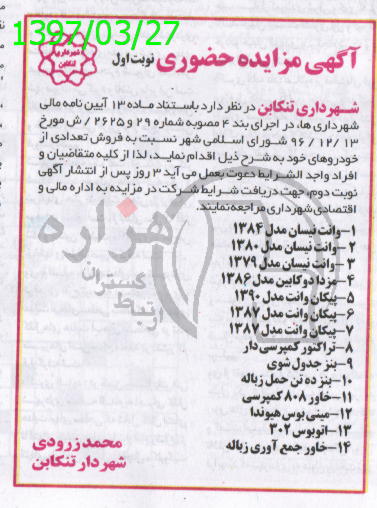 1397/03/27
شهرداری
تنکابن
آگهی مزایده حضوری نوبت اول
شهرداری تنکابن در نظر دارد باستناد ماده ۱۳ آیین نامه مالی
شهرداری ها، در اجرای بند ۴ مصوبه شماره ۲۹ و ۲۶۲۵ / ش مورخ
۹۶ / ۱۲ / ۱۳ شورای اسلامی شهر نسبت به فروش تعدادی از
خودروهای خود به شرح ذیل اقدام نماید، لذا از کلیه متقاضیان و
افراد واجد الشرایط دعوت بعمل می آید ۳ روز پس از انتشار آگهی
نوبت دوم، جهت دریافت شرایط شرکت در مزایده به اداره مالی و
اقتصادی شهرداری مراجعه نمایند.
۱- وانت نیسان مدل ۱۳۸۴
۲- وانت نیسان مدل ۱۳۸۰
۳- وانت نیسان مدل ۱۳۷۹
۴- مزدا دو کابین مدل ۱۳۸۶
۵- پیکان وانت مدل ۱۳۹۰
۶- پیکان وانت مدل ۱۳۸۷
۷- پیکان وانت مدل ۱۳۸۷
۸- تراکتور کمپرسی دار
۹- بنز جدول شوی
۱۰- بنز ده تن حمل زباله
۱۱- خاور ۸۰۸ کمپرسی
۱۲- مینی بوس هیوندا
۱۳- اتوبوس ۳۰۲
۱۴- خاور جمع آوری زباله
محمد زرودی
شهردار تنکابن
هزاره
گستران
ارتباط